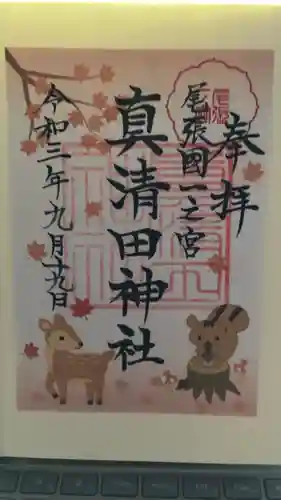 奉拝
尾張國一之宮
真清田神社
令和二年九月十九日